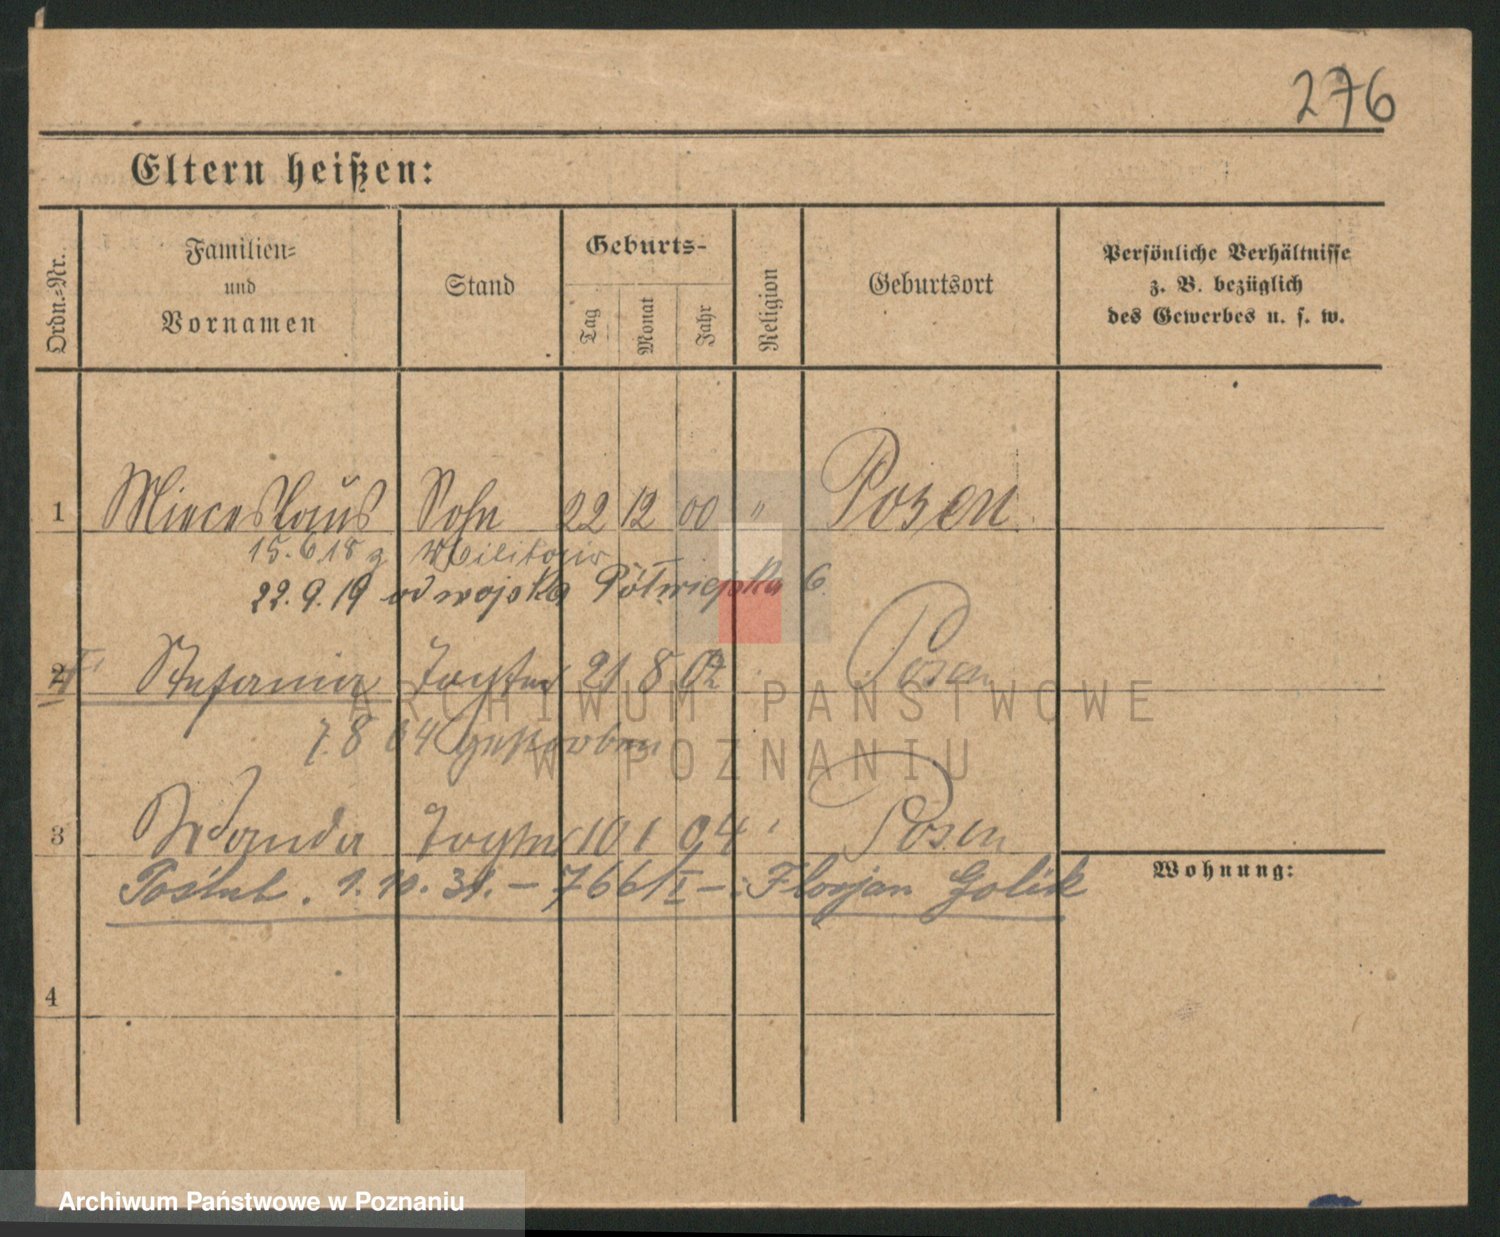 276
Eltern heißen:
Ordn.-Nr. Familien- und Vornamen Stand Geburts- Tag Monat Jahr Religion Geburtsort Persönliche Verhältnisse z. B. bezüglich des Gewerbes u. s. w.
1 Mieceslaus Sohn 22 12 00 " Posen
15. 6 18 z Militair
22. 9. 19 od wojska Półwiejska 6
2 Stefania Tochter 21 8 02 Posen
7. 8 04 gestorben
3 Wanda Tochter 10 1 04 Posen
Wohnung:
Poślub. 1. 10. 31. – 766/I – : Florjan Golik
4
ARCHIWUM PAŃSTWOWE
W POZNANIU
Archiwum Państwowe w Poznaniu